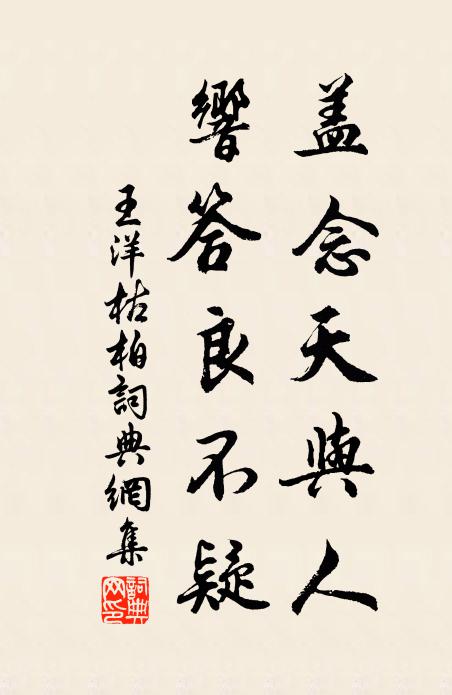 盖念天與人
響答良不疑
王洋枯柏詞典網集
詞典網印